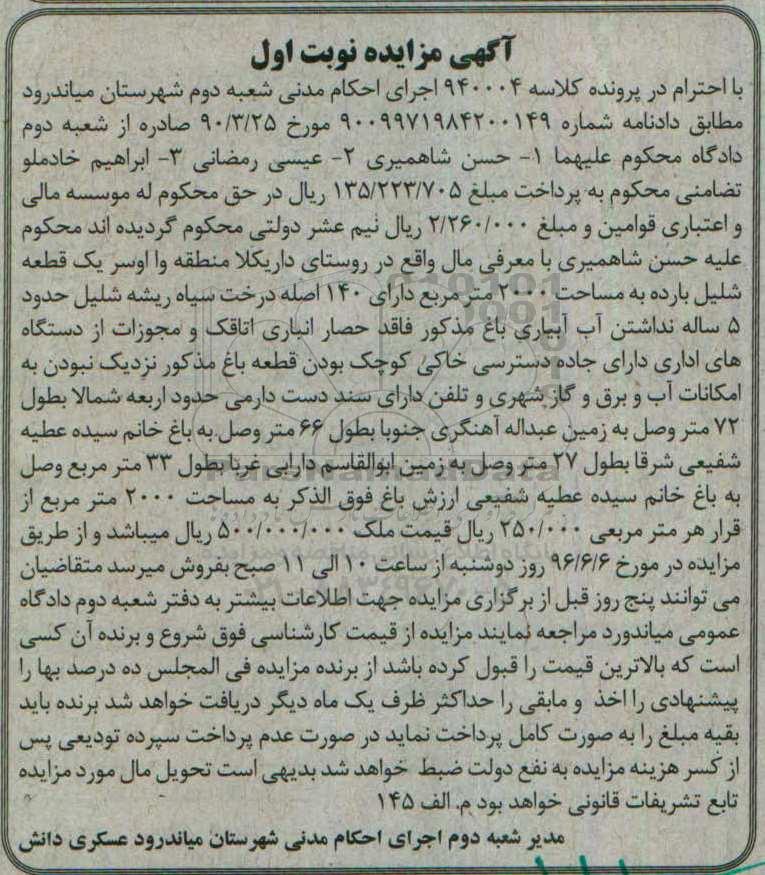 آگهی مزایده نوبت اول
با احترام در پرونده کلاسه ۹۴۰۰۰۴ اجرای احکام مدنی شعبه دوم شهرستان میاندرود
مطابق دادنامه شماره ۹۰۰۹۹۷۱۹۸۴۲۰۰۱۴۹ مورخ ۹۰/۳/۲۵ صادره از شعبه دوم
دادگاه محکوم علیهما ۱- حسن شاهمیری ۲- عیسی رمضانی ۳- ابراهیم خادملو
تضامنی محکوم به پرداخت مبلغ ۱۳۵/۲۲۳/۷۰۵ ریال در حق محکوم له موسسه مالی
و اعتباری قوامین و مبلغ ۲/۲۶۰/۰۰۰ ریال نیم عشر دولتی محکوم گردیده اند محکوم
علیه حسن شاهمیری با معرفی مال واقع در روستای داریکلا منطقه وا اوسر یک قطعه
شلیل بارده به مساحت ۲۰۰۰ متر مربع دارای ۱۴۰ اصله درخت سیاه ریشه شلیل حدود
۵ ساله نداشتن آب آبیاری باغ مذکور فاقد حصار انباری اتاقک و مجوزات از دستگاه
های اداری دارای جاده دسترسی خاکی کوچک بودن قطعه باغ مذکور نزدیک نبودن به
امکانات آب و برق و گاز شهری و تلفن دارای سند دست دارمی حدود اربعه شمالا بطول
۷۲ متر وصل به زمین عبداله آهنگری جنوبا بطول ۶۶ متر وصل به باغ خانم سیده عطیه
شفیعی شرقا بطول ۲۷ متر وصل به زمین ابوالقاسم دارابی غربا بطول ۳۳ متر مربع وصل
به باغ خانم سیده عطیه شفیعی ارزش باغ فوق الذکر به مساحت ۲۰۰۰ متر مربع از
قرار هر متر مربعی ۲۵۰/۰۰۰ ریال قیمت ملک ۵۰۰/۰۰۰/۰۰۰ ریال میباشد و از طریق
مزایده در مورخ ۹۶/۶/۶ روز دوشنبه از ساعت ۱۰ الی ۱۱ صبح بفروش میرسد متقاضیان
می توانند پنج روز قبل از برگزاری مزایده جهت اطلاعات بیشتر به دفتر شعبه دوم دادگاه
عمومی میاندورد مراجعه نمایند مزایده از قیمت کارشناسی فوق شروع و برنده آن کسی
است که بالاترین قیمت را قبول کرده باشد از برنده مزایده فی المجلس ده درصد بها را
پیشنهادی را اخذ و مابقی را حداکثر ظرف یک ماه دیگر دریافت خواهد شد برنده باید
بقیه مبلغ را به صورت کامل پرداخت نماید در صورت عدم پرداخت سپرده تودیعی پس
از کسر هزینه مزایده به نفع دولت ضبط خواهد شد بدیهی است تحویل مال مورد مزایده
تابع تشریفات قانونی خواهد بود م. الف ۱۴۵
مدیر شعبه دوم اجرای احکام مدنی شهرستان میاندرود عسکری دانش